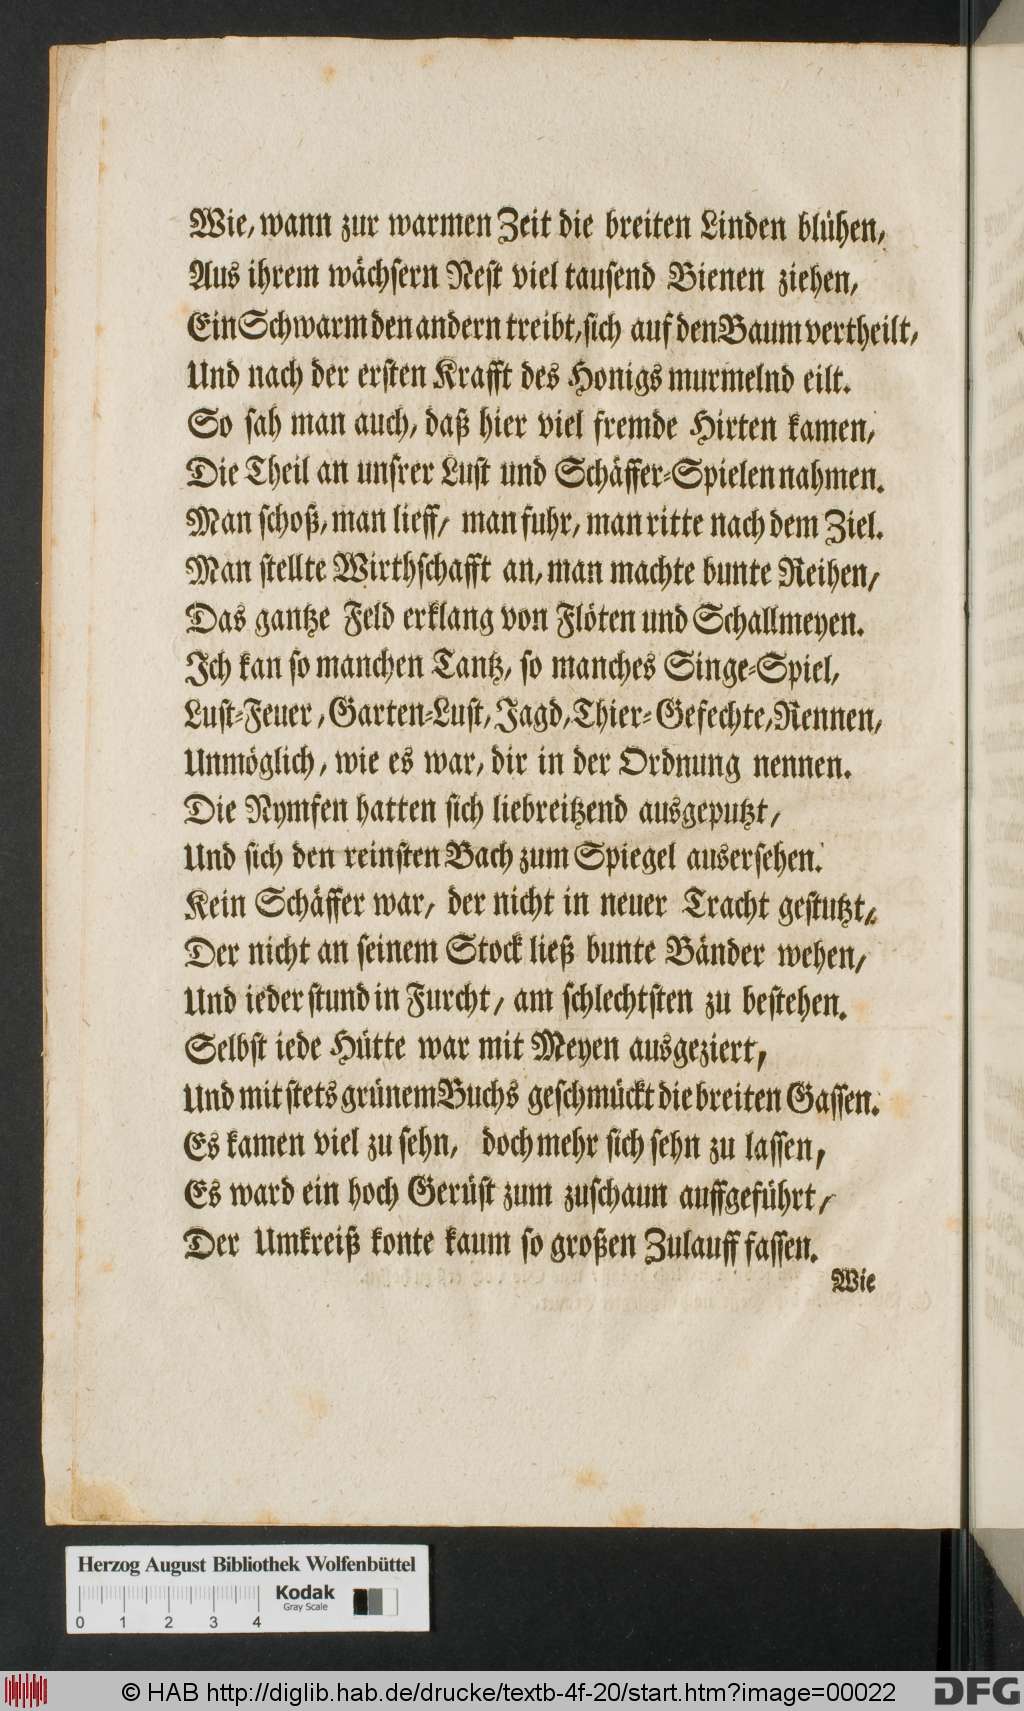 Wie, wann zur warmen Zeit die breiten Linden blühen,
Aus ihrem wächsern Nest viel tausend Bienen ziehen,
Ein Schwarm den andern treibt, sich auf den Baum vertheilt,
Und nach der ersten Krafft des Honigs murmelnd eilt.
So sah man auch, daß hier viel fremde Hirten kamen,
Die Theil an unsrer Lust und Schäffer-Spielen nahmen.
Man schoß, man lieff, man fuhr, man ritte nach dem Ziel.
Man stellte Wirthschafft an, man machte bunte Reihen,
Das gantze Feld erklang von Flöten und Schallmeyen.
Ich kan so manchen Tantz, so manches Singe-Spiel,
Lust-Feuer, Garten-Lust, Jagd, Thier-Gefechte, Rennen,
Unmöglich, wie es war, dir in der Ordnung nennen.
Die Nymfen hatten sich liebreitzend ausgeputzt,
Und sich den reinsten Bach zum Spiegel ausersehen.
Kein Schäffer war, der nicht in neuer Tracht gestutzt,
Der nicht an seinem Stock ließ bunte Bänder wehen,
Und ieder stund in Furcht, am schlechtsten zu bestehen.
Selbst iede Hütte war mit Meyen ausgeziert,
Und mit stets grünem Buchs geschmückt die breiten Gassen.
Es kamen viel zu sehn, doch mehr sich sehn zu lassen,
Es ward ein hoch Gerüst zum zuschaun auffgeführt,
Der Umkreiß konte kaum so großen Zulauff fassen.
Wie
Herzog August Bibliothek Wolfenbüttel
Kodak
Gray Scale
0 1 2 3 4
© HAB http://diglib.hab.de/drucke/textb-4f-20/start.htm?image=00022
DFG